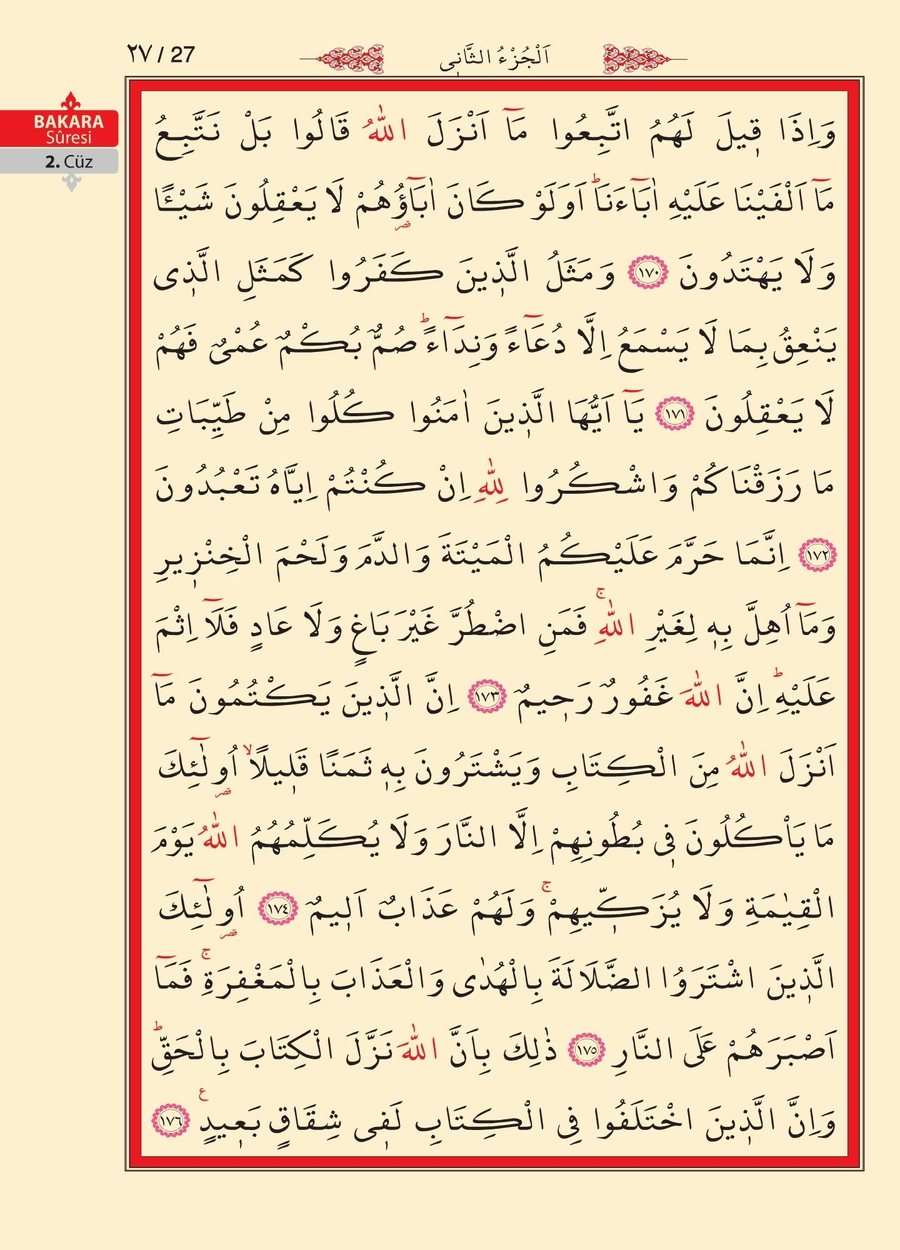 ٢٧ / 27
اَلْجُزْءُ الثَّانٖي
BAKARA
Sûresi
2. Cüz
وَاِذَا قٖيلَ لَهُمُ اتَّبِعُوا مَٓا اَنْزَلَ اللّٰهُ قَالُوا بَلْ نَتَّبِعُ
مَٓا اَلْفَيْنَا عَلَيْهِ اٰبَٓاءَنَاؕ اَوَلَوْ كَانَ اٰبَٓاؤُ۬هُمْ لَا يَعْقِلُونَ شَيْـًٔا
وَلَا يَهْتَدُونَ ﴿١٧٠﴾ وَمَثَلُ الَّذٖينَ كَفَرُوا كَمَثَلِ الَّذٖى
يَنْعِقُ بِمَا لَا يَسْمَعُ اِلَّا دُعَٓاءً وَنِدَٓاءًؕ صُمٌّ بُكْمٌ عُمْىٌ فَهُمْ
لَا يَعْقِلُونَ ﴿١٧١﴾ يَٓا اَيُّهَا الَّذٖينَ اٰمَنُوا كُلُوا مِنْ طَيِّبَاتِ
مَا رَزَقْنَاكُمْ وَاشْكُرُوا لِلّٰهِ اِنْ كُنْتُمْ اِيَّاهُ تَعْبُدُونَ
﴿١٧٢﴾ اِنَّمَا حَرَّمَ عَلَيْكُمُ الْمَيْتَةَ وَالدَّمَ وَلَحْمَ الْخِنْزٖيرِ
وَمَٓا اُهِلَّ بِهٖ لِغَيْرِ اللّٰهِۚ فَمَنِ اضْطُرَّ غَيْرَ بَاغٍ وَلَا عَادٍ فَلَٓا اِثْمَ
عَلَيْهِؕ اِنَّ اللّٰهَ غَفُورٌ رَحٖيمٌ ﴿١٧٣﴾ اِنَّ الَّذٖينَ يَكْتُمُونَ مَٓا
اَنْزَلَ اللّٰهُ مِنَ الْكِتَابِ وَيَشْتَرُونَ بِهٖ ثَمَنًا قَلٖيلًاۙ اُو۬لٰٓئِكَ
مَا يَاْكُلُونَ فٖى بُطُونِهِمْ اِلَّا النَّارَ وَلَا يُكَلِّمُهُمُ اللّٰهُ يَوْمَ
الْقِيٰمَةِ وَلَا يُزَكّٖيهِمْۚ وَلَهُمْ عَذَابٌ اَلٖيمٌ ﴿١٧٤﴾ اُو۬لٰٓئِكَ
الَّذٖينَ اشْتَرَوُا الضَّلَالَةَ بِالْهُدٰى وَالْعَذَابَ بِالْمَغْفِرَةِۚ فَمَٓا
اَصْبَرَهُمْ عَلَى النَّارِ ﴿١٧٥﴾ ذٰلِكَ بِاَنَّ اللّٰهَ نَزَّلَ الْكِتَابَ بِالْحَقِّؕ
وَاِنَّ الَّذٖينَ اخْتَلَفُوا فِى الْكِتَابِ لَفٖى شِقَاقٍ بَعٖيدٍ ع ﴿١٧٦﴾